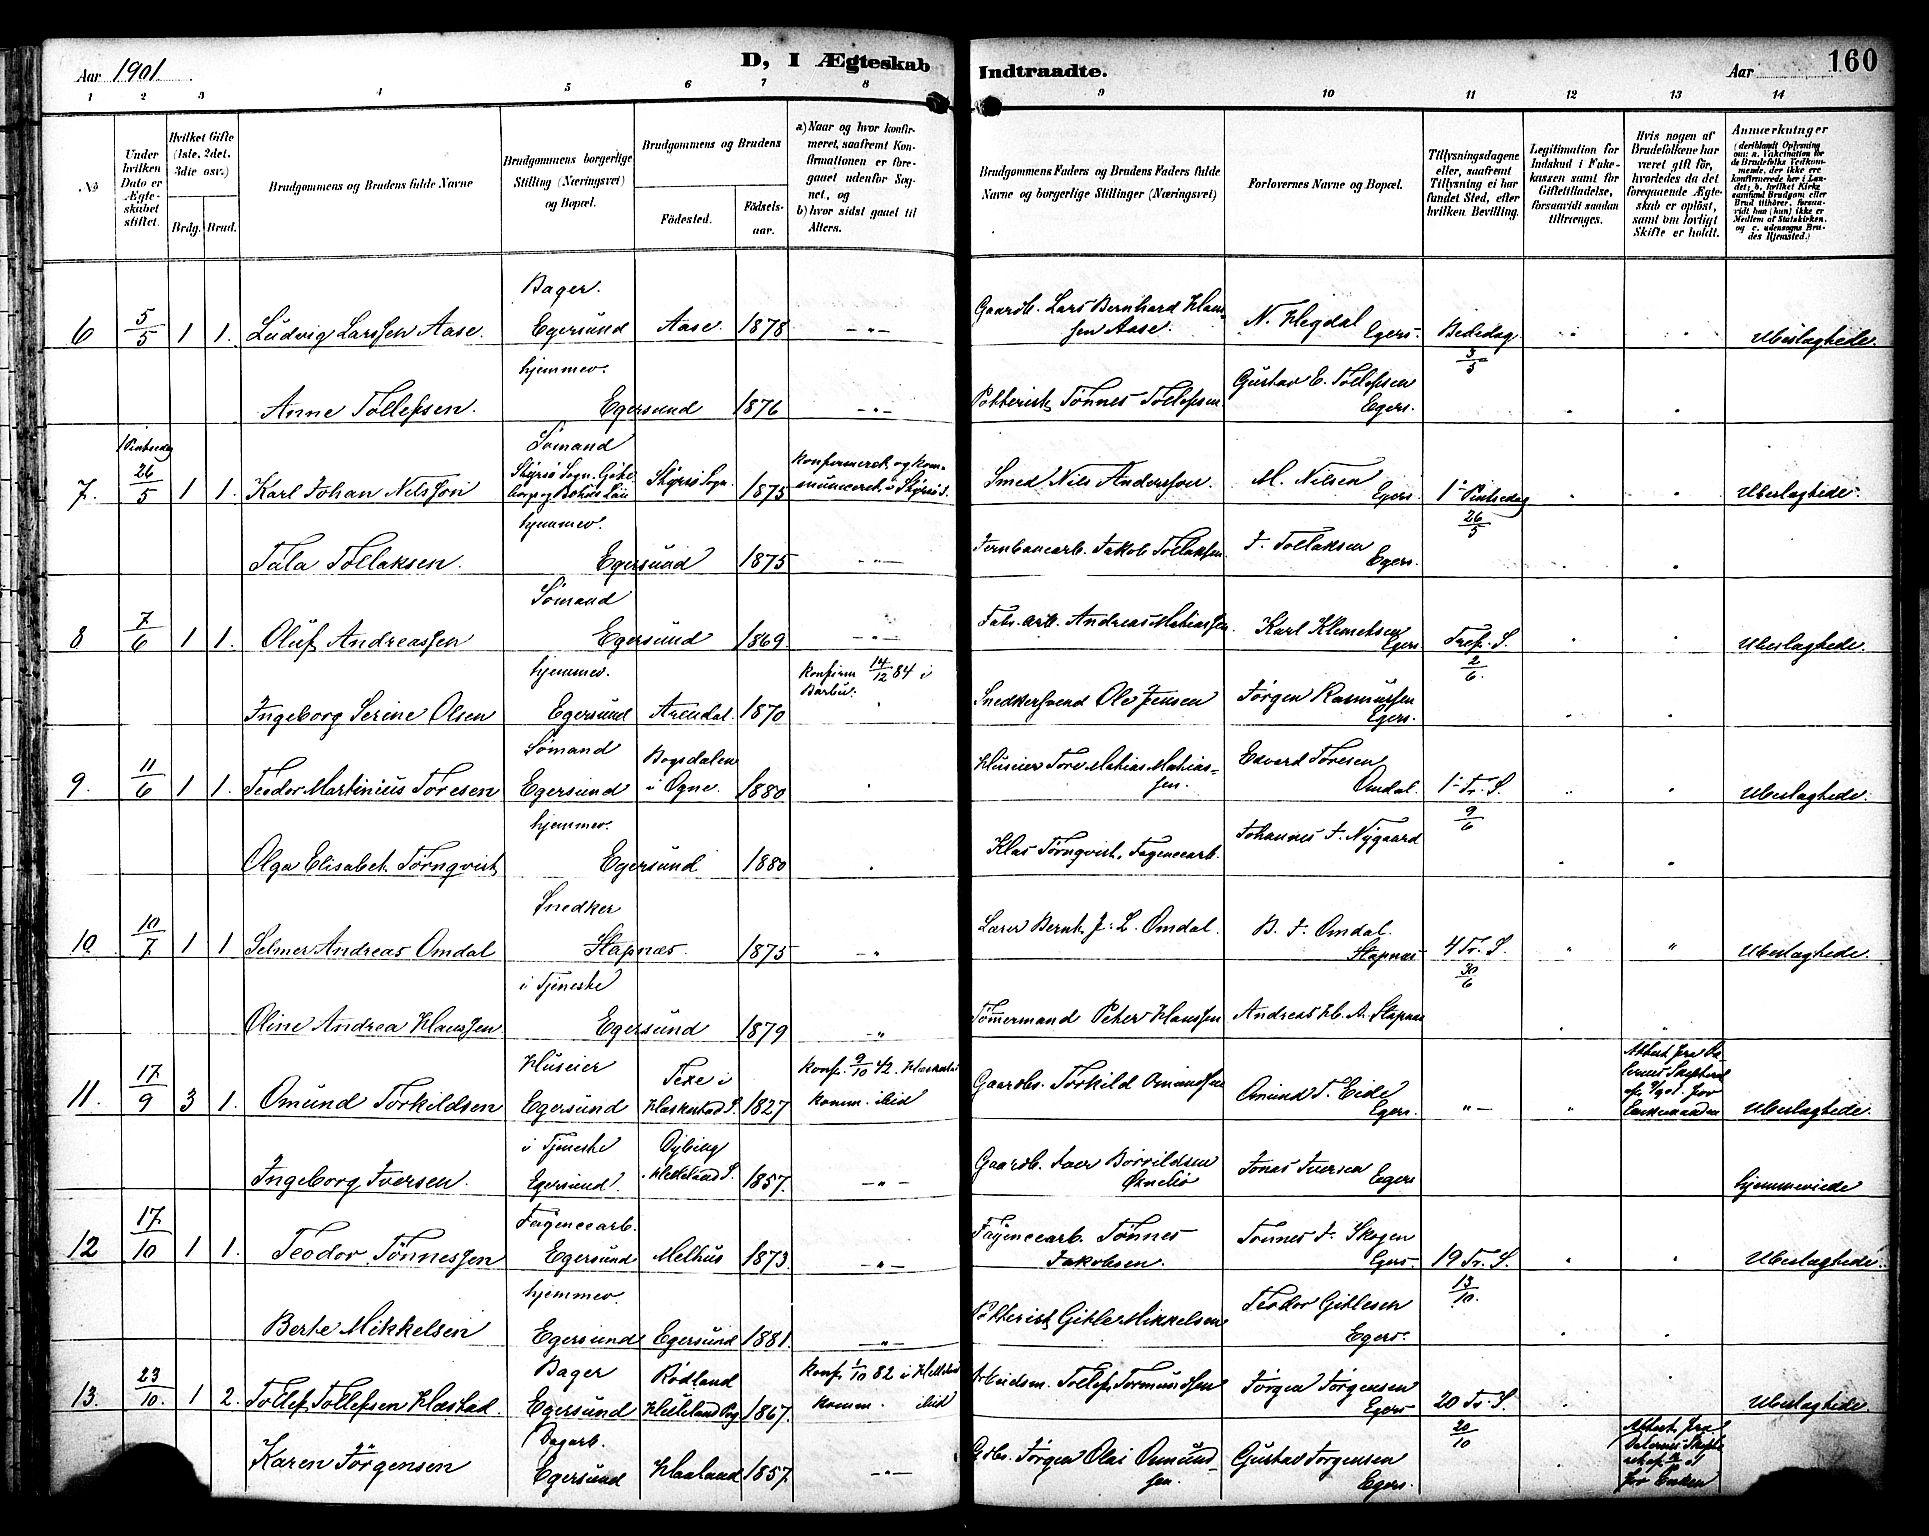 Aar 1901.
D, I Ægteskab
Indtraadte.
Aar
160
1 2 3 4 5 6 7 8 9 10 11 12 13 14
No
Under hvilken Dato er Ægteskabet stiftet.
Hvilket Gifte (1ste, 2det, 3die osv.)
Brdg. Brud.
Brudgommens og Brudens fulde Navne
Brudgommens borgerlige Stilling (Næringsvei) og Bopæl.
Brudgommens og Brudens
Födested.
Födselsaar.
a) Naar og hvor konfirmeret, saafremt Konfirmationen er foregaaet udenfor Sognet, og
b) hvor sidst gaaet til Alters.
Brudgommens Faders og Brudens Faders fulde Navne og borgerlige Stillinger (Næringsvei)
Forlovernes Navne og Bopæl.
Tillysningsdagene eller, saafremt Tillysning ei har fundet Sted, efter hvilken Bevilling.
Legitimation for Indskud i Enkekassen samt for Giftetilladelse, forsaavidt saadan tiltrænges.
Hvis nogen af Brudefolkene har været gift för, hvorledes da det foregaaende Ægteskab er oplöst, samt om lovligt Skifte er holdt.
Anmærkninger
(deriblandt Oplysning om: a. Vakcination for de Brudefolks Vedkommende, der ikke ere konfirmerede her i Landet; b. hvilket Kirkesamfund Brudgom eller Brud tilhörer, forsaavidt han (hun) ikke er Medlem af Statskirken, og c. udensogns Brudes Hjemsted.)
6 5/5 1 1. Ludvig Larssen Aase. Bager. Egersund Aase. 1878 -"- Gaardb. Lars Bernhard Hanssen Aase. N. Hegdal Egers. Bededag 3/5 " " Ubeslægtede.
Anne Tollefsen. hjemmev. Egersund 1876 -"- Potterist Tönnes Tollefsen. Gustav E. Tollefsen Egers. " "
7. 1 Pintsedag 26/5 1 1. Karl Johan Nilsson Sömand Styrsö Sogn. Styrsö Sogn. 1875 konfirmeret og kommuniceret i Styrsö S. Smed Nils Andersson M. Nilsen Egers. 1ste Pintsedag 26/5 " " Ubeslægtede.
Tala Tollaksen. hjemmev. Egersund 1875 -"- Jernbanearb. Jakob Tollaksen. J. Tollaksen Egers. " "
8 7/6 1 1. Oluf Andreassen Sömand Egersund 1869 -"- Fabr. arb. Andreas Mathiassen. Karl Klemetsen Egers Tref. S. 2/6. " " Ubeslægtede.
Ingeborg Serine Olsen hjemmev. Egersund Arendal 1870 konfirm 14/12 84 i Barbu. " Snedkersvend Ole Jensen Jørgen Rasmussen Egers. " "
9. 11/6 1 1. Teodor Martinius Toresen Sömand Egersund Bogsdalen i Ogne. 1880 " Huseier Tore Mathias Mathiassen. Edvard Toresen Omdal. 1ste Tr. S. 9/6 " " Ubeslægtede.
Olga Elisabet Törnqvist hjemmev. Egersund 1880 " Klas Törnqvist, Fagencearb. Johannes J. Nygaard " "
10 10/7 1 1 Selmer Andreas Omdal Snedker Stapnæs. 1875 -"- Lærer Bernt J. L. Omdal. B. J. Omdal. Stapnæs 4 Tr. S. 30/6 " " Ubeslægtede.
Oline Andrea Hanssen i Tjeneste Egersund 1879 -"- Tömmermand Peter Hanssen Andreas H. A. Stapnæs " "
11. 17/9 3 1. Omund Torkildsen Huseier Egersund Texe i Haskestad S. 1827 konf. 9/10 42. komm. ibid Gaardbr. Torkild Omundsen Omund T. Eide Egers. "- " Ubeslægtede.
Ingeborg Iversen. i Tjeneste Egersund. Dybing Helleland S. 1857. -"- Gaardb. Iver Börrildsen Jonas Iversen Egers hjemmeviede
12 17/10 1 1. Teodor Tönnessen Fagencearb. Egersund Melhus 1873. -"- Fagencearb. Tönnes Jakobsen. Tönnes J. Skogen Egers 19 Tr. S. 13/10. " " Ubeslægtede.
Berte Mikkelsen hjemmev. Egersund Egersund 1881. -"- Potterist Gitle Mikkelsen Teodor Gitlesen Egers. " "
13. 23/10. 1 2. Tollef Tollefsen Hæstad. Bager Egersund Rödland Helleland Prg 1867. konf. 1/10 82 i Helleland komm. ibid Arbeidsm. Tollef Tormundsen Jörgen Jörgensen Egers 20 Tr. S. 20/10 " Ubeslægtede.
Karen Jörgensen Dagarb. Egersund Haaland 1857. -"- Gdbr. Jörgen Olai Omundsen. Gustav Jörgensen Egers. "